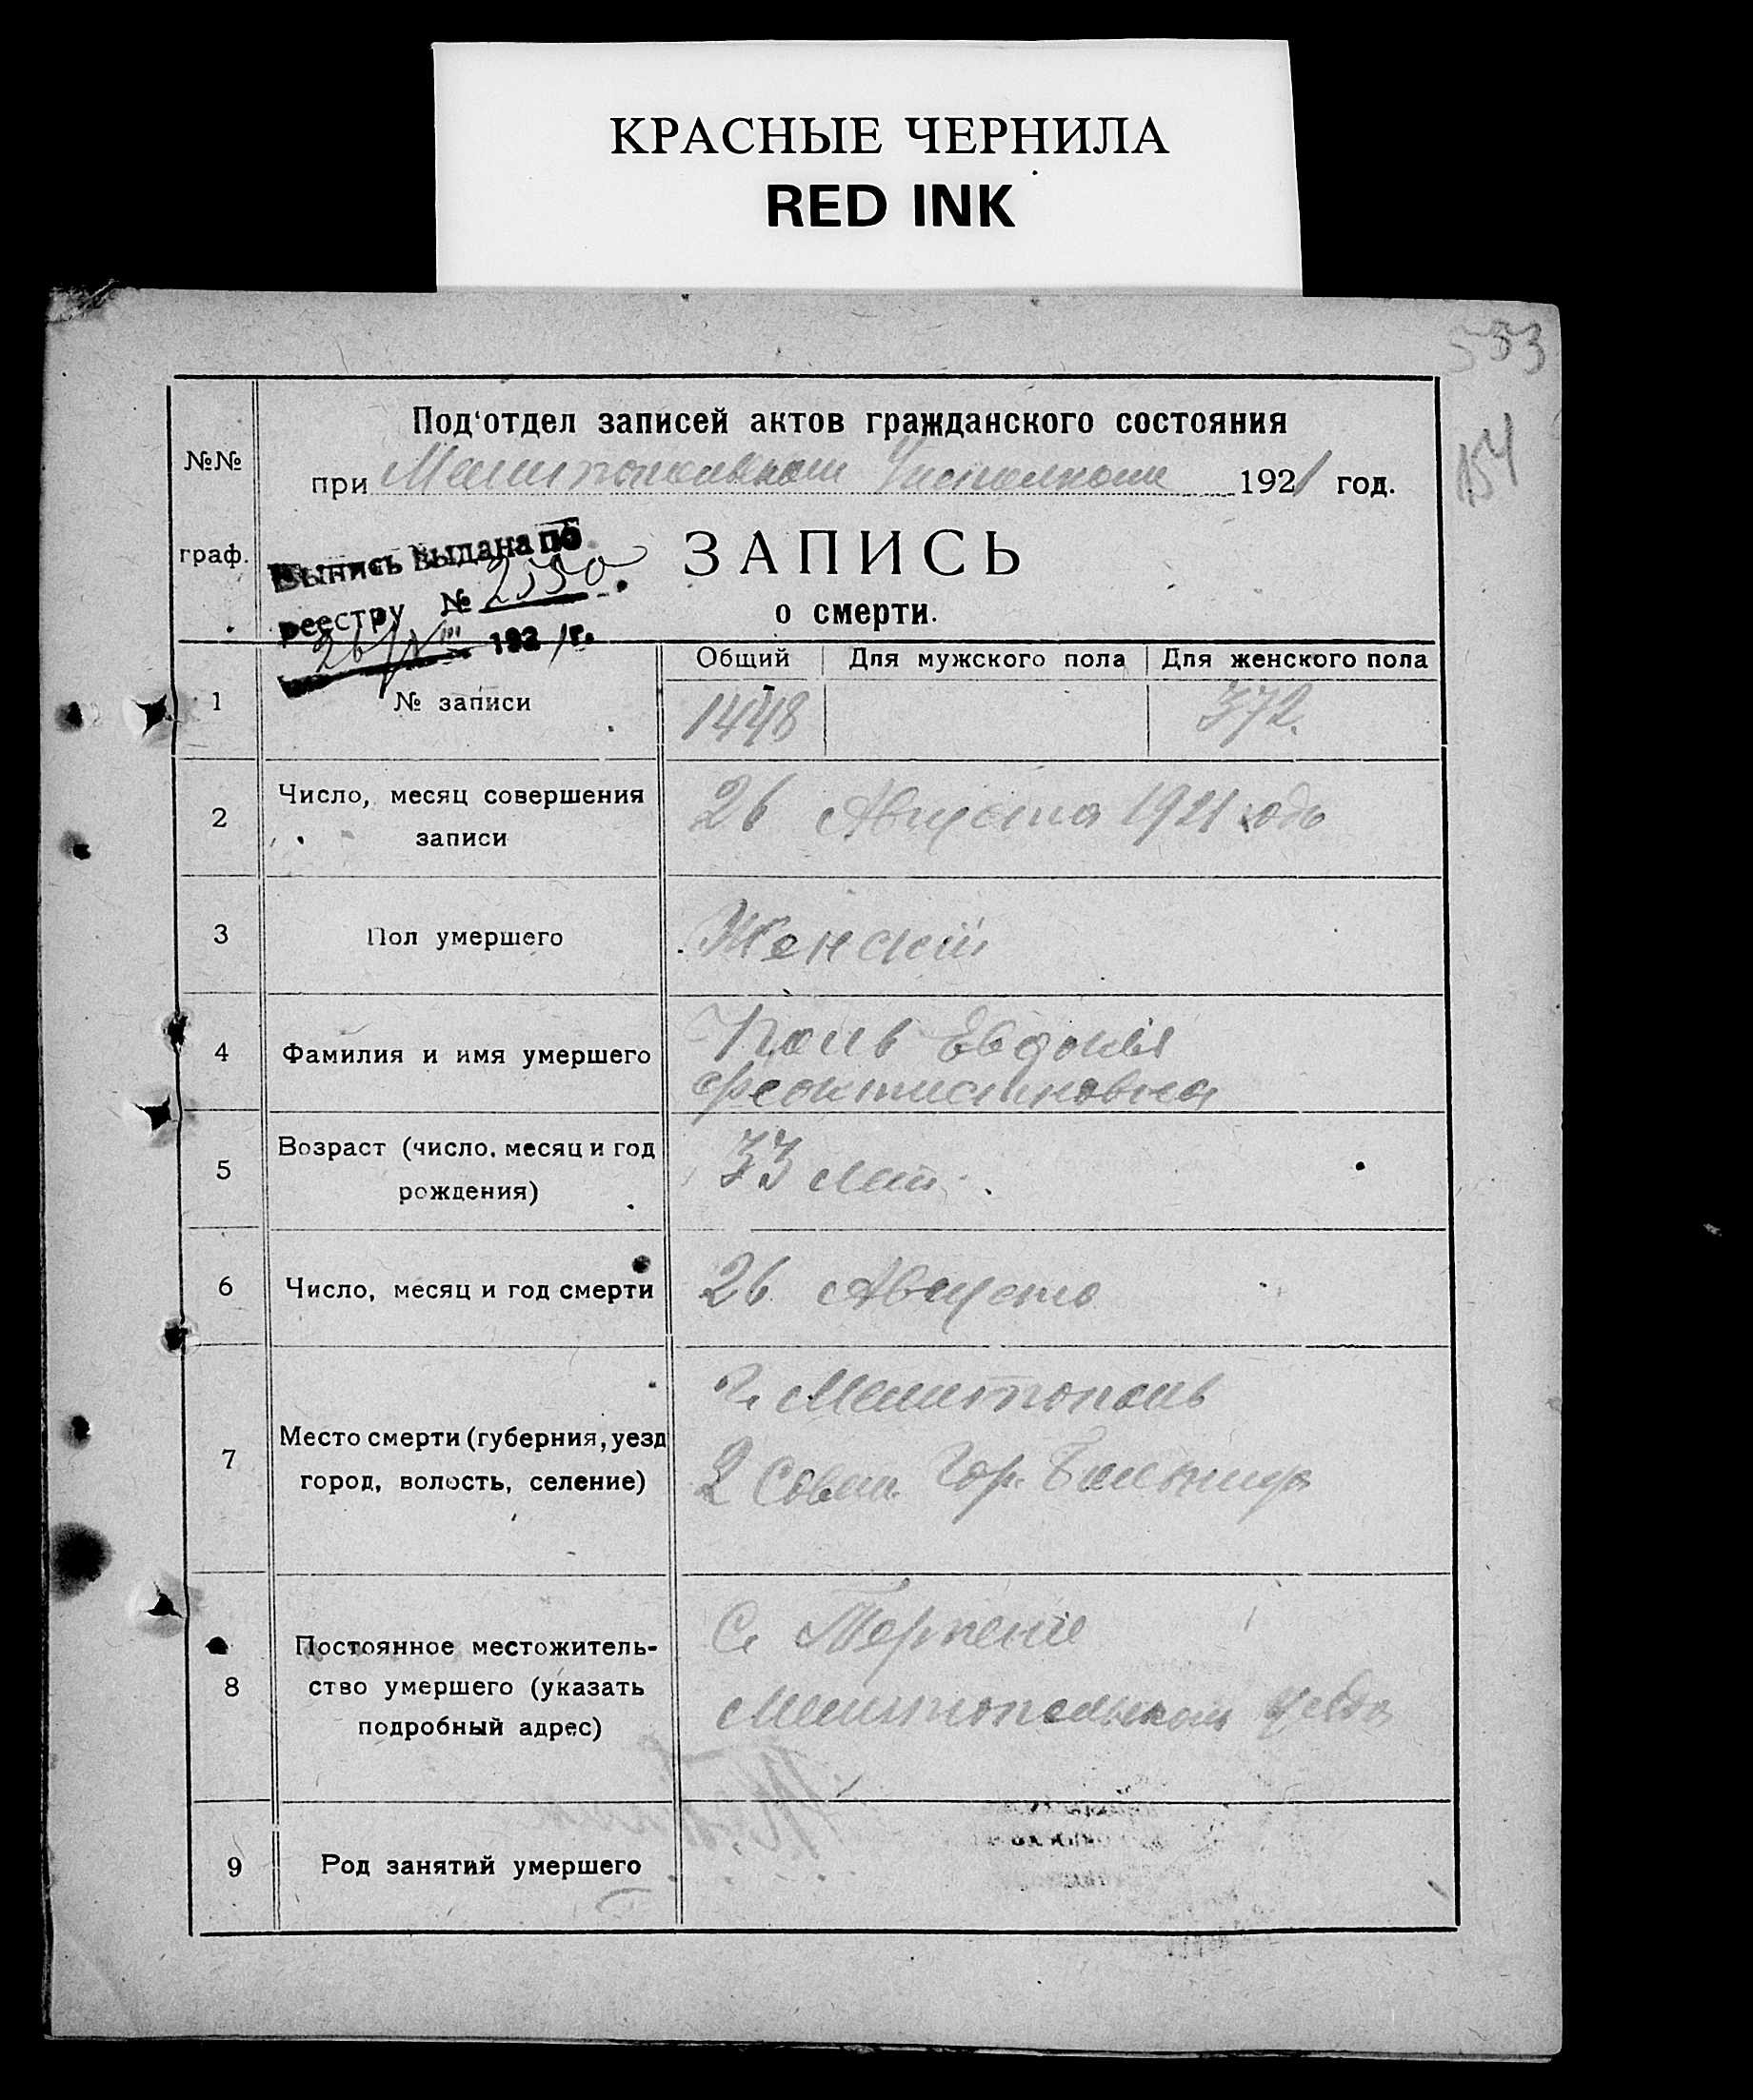 КРАСНЫЕ ЧЕРНИЛА
RED INK
533
154
Под'отдел записей актов гражданского состояния
№№
при Мелитопольском Исполкоме 1921 год.
граф.
Выпись выдана по
реестру №
26/VIII 1921 г.
ЗАПИСЬ
о смерти.
Общий Для мужского пола Для женского пола
1 № записи 1448 372.
2 Число, месяц совершения
записи
26 Августа 1921 года
3 Пол умершего Женский
4 Фамилия и имя умершего
Поль Евдокія
Феоктистовна
5 Возраст (число, месяц и год
рождения)
33 лет.
6 Число, месяц и год смерти 26 Августа
7 Место смерти (губерния, уезд
город, волость, селение)
г. Мелитополь
2 Совет. Гор. Больница
8 Постоянное местожитель-
ство умершего (указать
подробный адрес)
С. Терпеніе
Мелитопольском уезда
9 Род занятий умершего